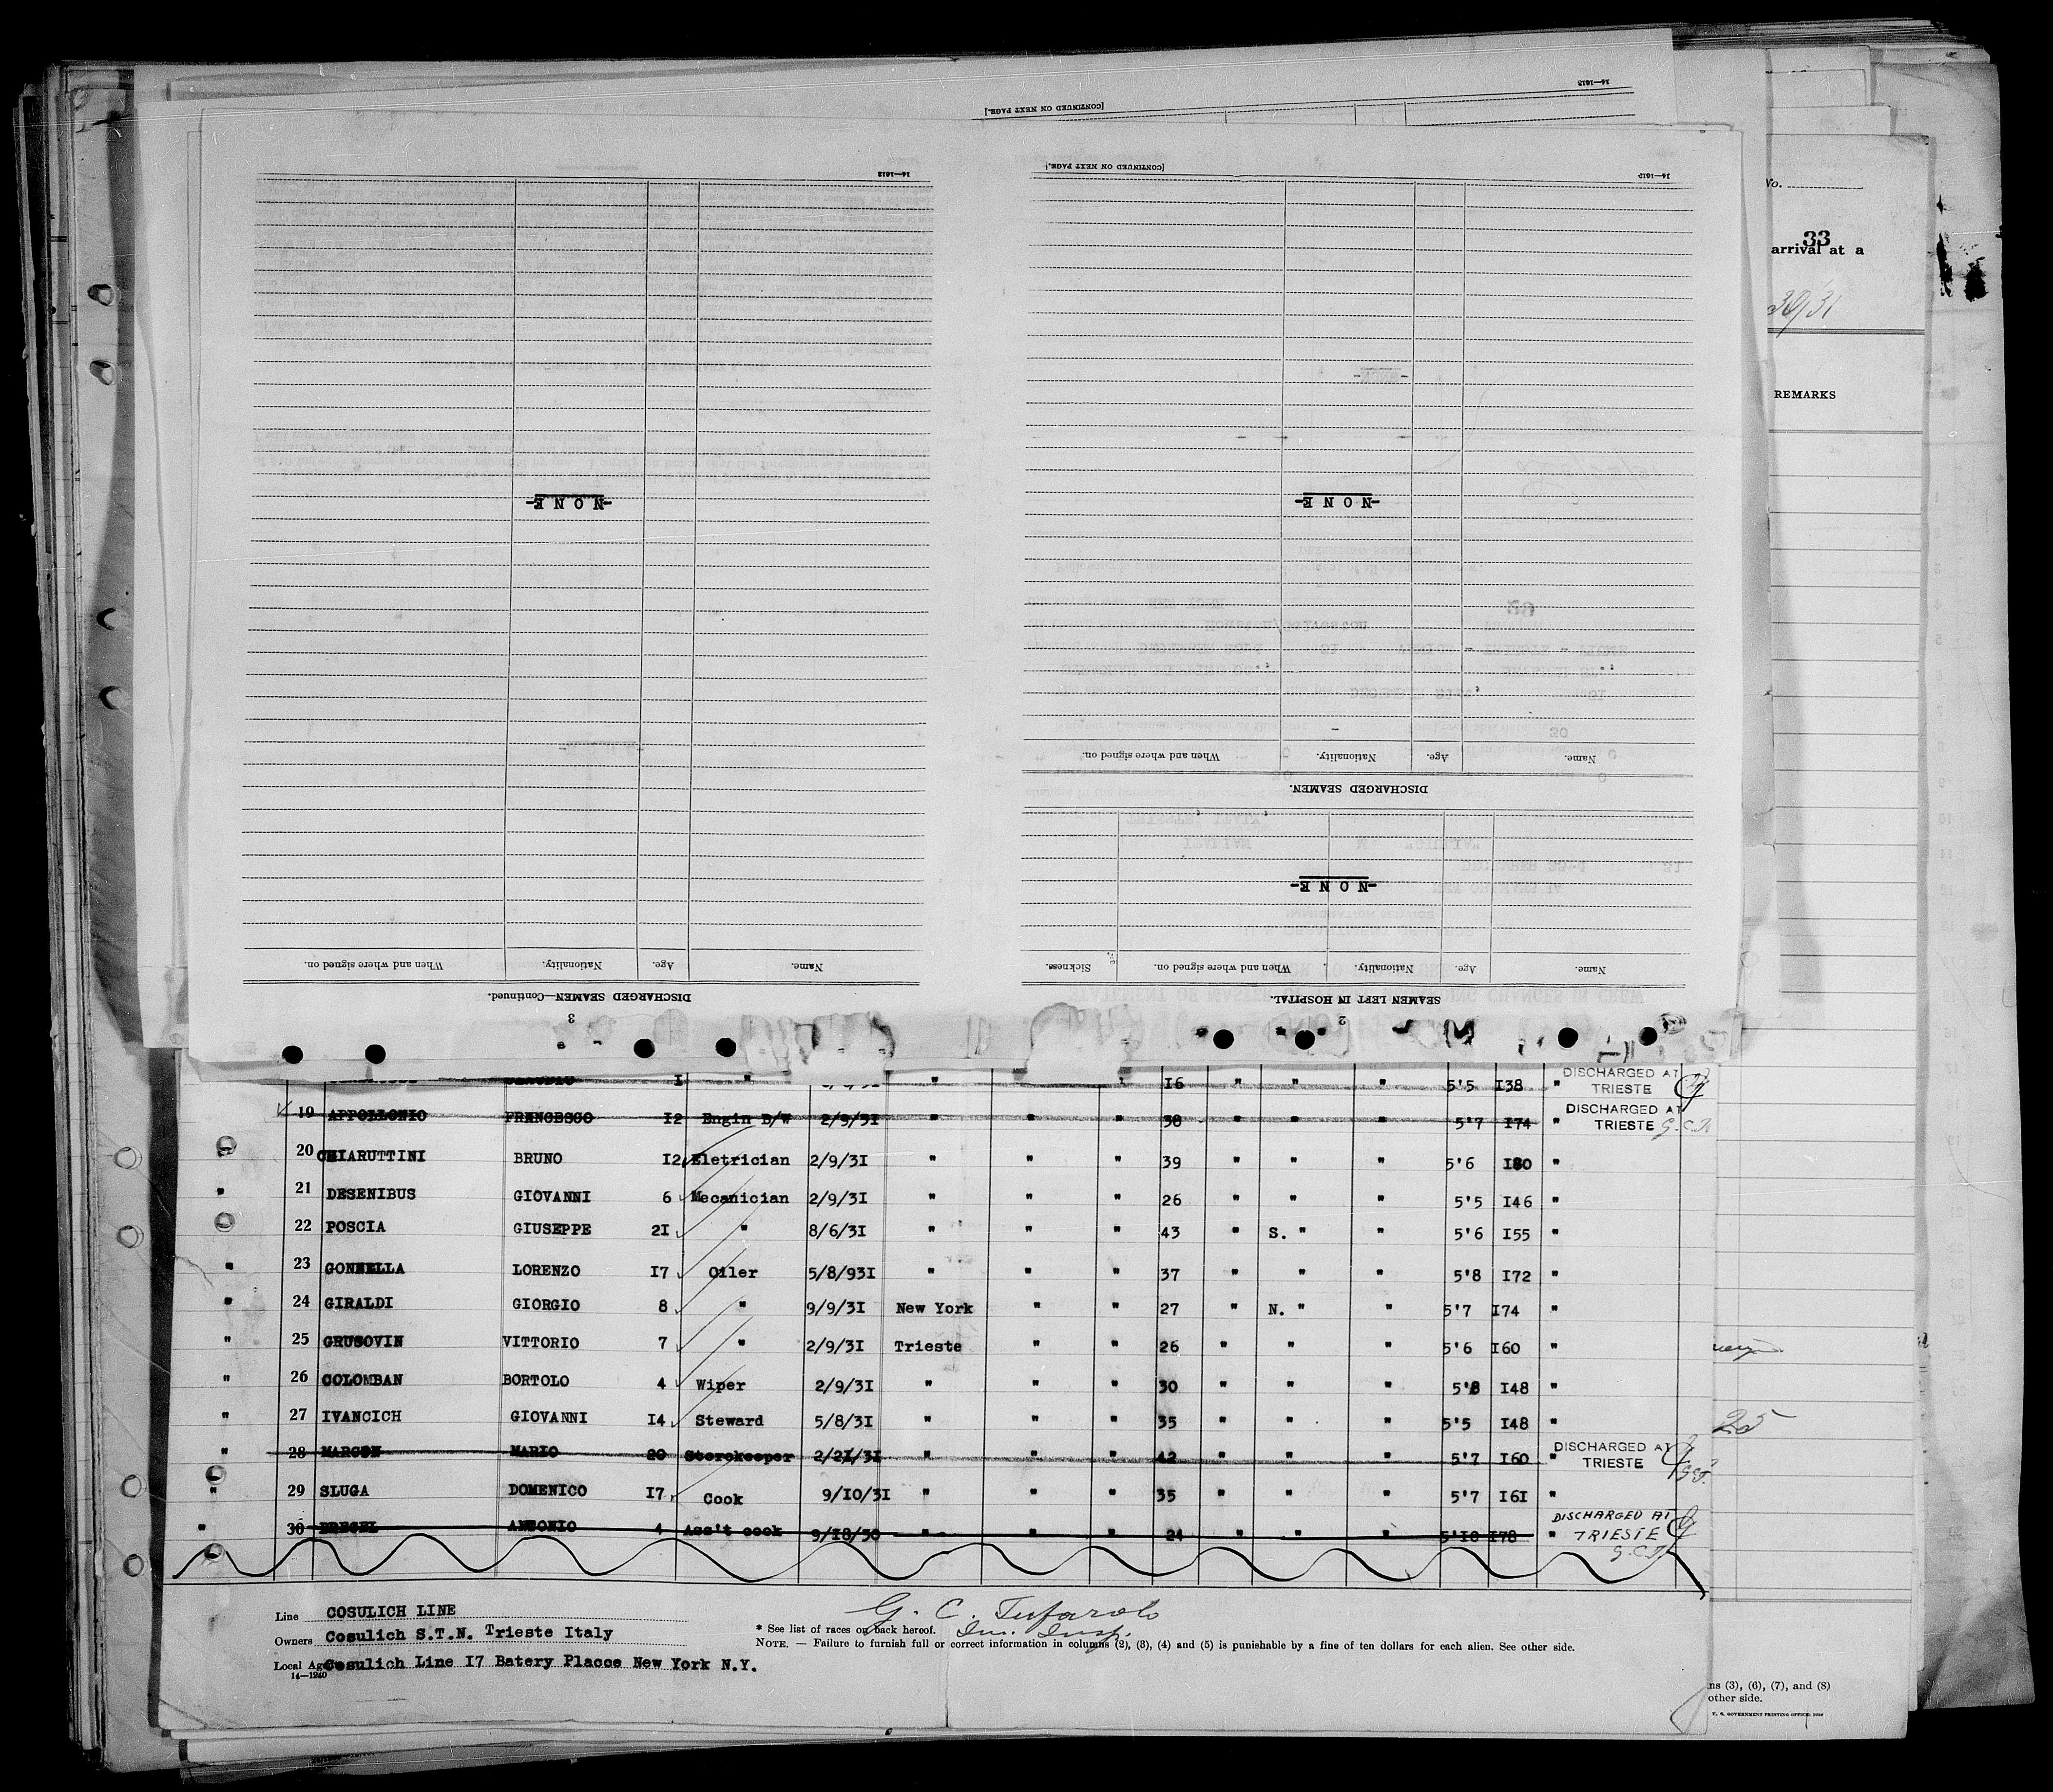 [CONTINUED ON NEXT PAGE.]
14—1613
14—1613
[CONTINUED ON NEXT PAGE.]
14—1612
No.
33
arrival at a
30/31
REMARKS
-NONE-
-NONE-
When and where signed on.
Nationality.
Age.
Name.
DISCHARGED SEAMEN.
-NONE-
When and where signed on.
Nationality.
Age.
Name.
Sickness.
When and where signed on.
Nationality.
Age.
Name.
DISCHARGED SEAMEN—Continued.
SEAMEN LEFT IN HOSPITAL.
3
2
I " " 16 " " " 5'5 I38 " DISCHARGED AT TRIESTE
19 APPOLLONIO FRANCESCO I2 Engin B/W 2/9/3I " " " 38 " " " 5'7 I74 " DISCHARGED AT TRIESTE
20 CHIARUTTINI BRUNO I2 Eletrician 2/9/3I " " " 39 " " " 5'6 I80 "
" 21 DESENIBUS GIOVANNI 6 Mecanician 2/9/3I " " " 26 " " " 5'5 I46 "
22 POSCIA GIUSEPPE 2I " 8/6/3I " " " 43 " S. " " 5'6 I55 "
" 23 GONNELLA LORENZO I7 Oiler 5/8/93I " " " 37 " " " 5'8 I72 "
" 24 GIRALDI GIORGIO 8 " 9/9/3I New York " " 27 " N. " " 5'7 I74 "
" 25 GRUSOVIN VITTORIO 7 " 2/9/3I Trieste " " 26 " " " 5'6 I60 "
" 26 COLOMBAN BORTOLO 4 Wiper 2/9/3I " " " 30 " " " 5'8 I48 "
" 27 IVANCICH GIOVANNI I4 Steward 5/8/3I " " " 35 " " " 5'5 I48 "
25
" 28 MARCON MARIO 20 Storekeeper 2/2I/3I " " " 42 " " " 5'7 I60 " DISCHARGED AT TRIESTE
" 29 SLUGA DOMENICO I7 Cook 9/I0/3I " " " 35 " " " 5'7 I6I "
" 30 ANTONIO 4 Ass't cook 9/I8/30 " " " 24 " " " 5'I0 I78 " DISCHARGED AT TRIESTE
Line COSULICH LINE
G. C. Tufarolo
Im. Insp.
Owners Cosulich S.T.N. Trieste Italy
* See list of races on back hereof.
NOTE. — Failure to furnish full or correct information in columns (2), (3), (4) and (5) is punishable by a fine of ten dollars for each alien. See other side.
Local Agents Cosulich Line I7 Batery Placce New York N.Y.
14—1240
ns (3), (6), (7), and (8)
other side.
U. S. GOVERNMENT PRINTING OFFICE: